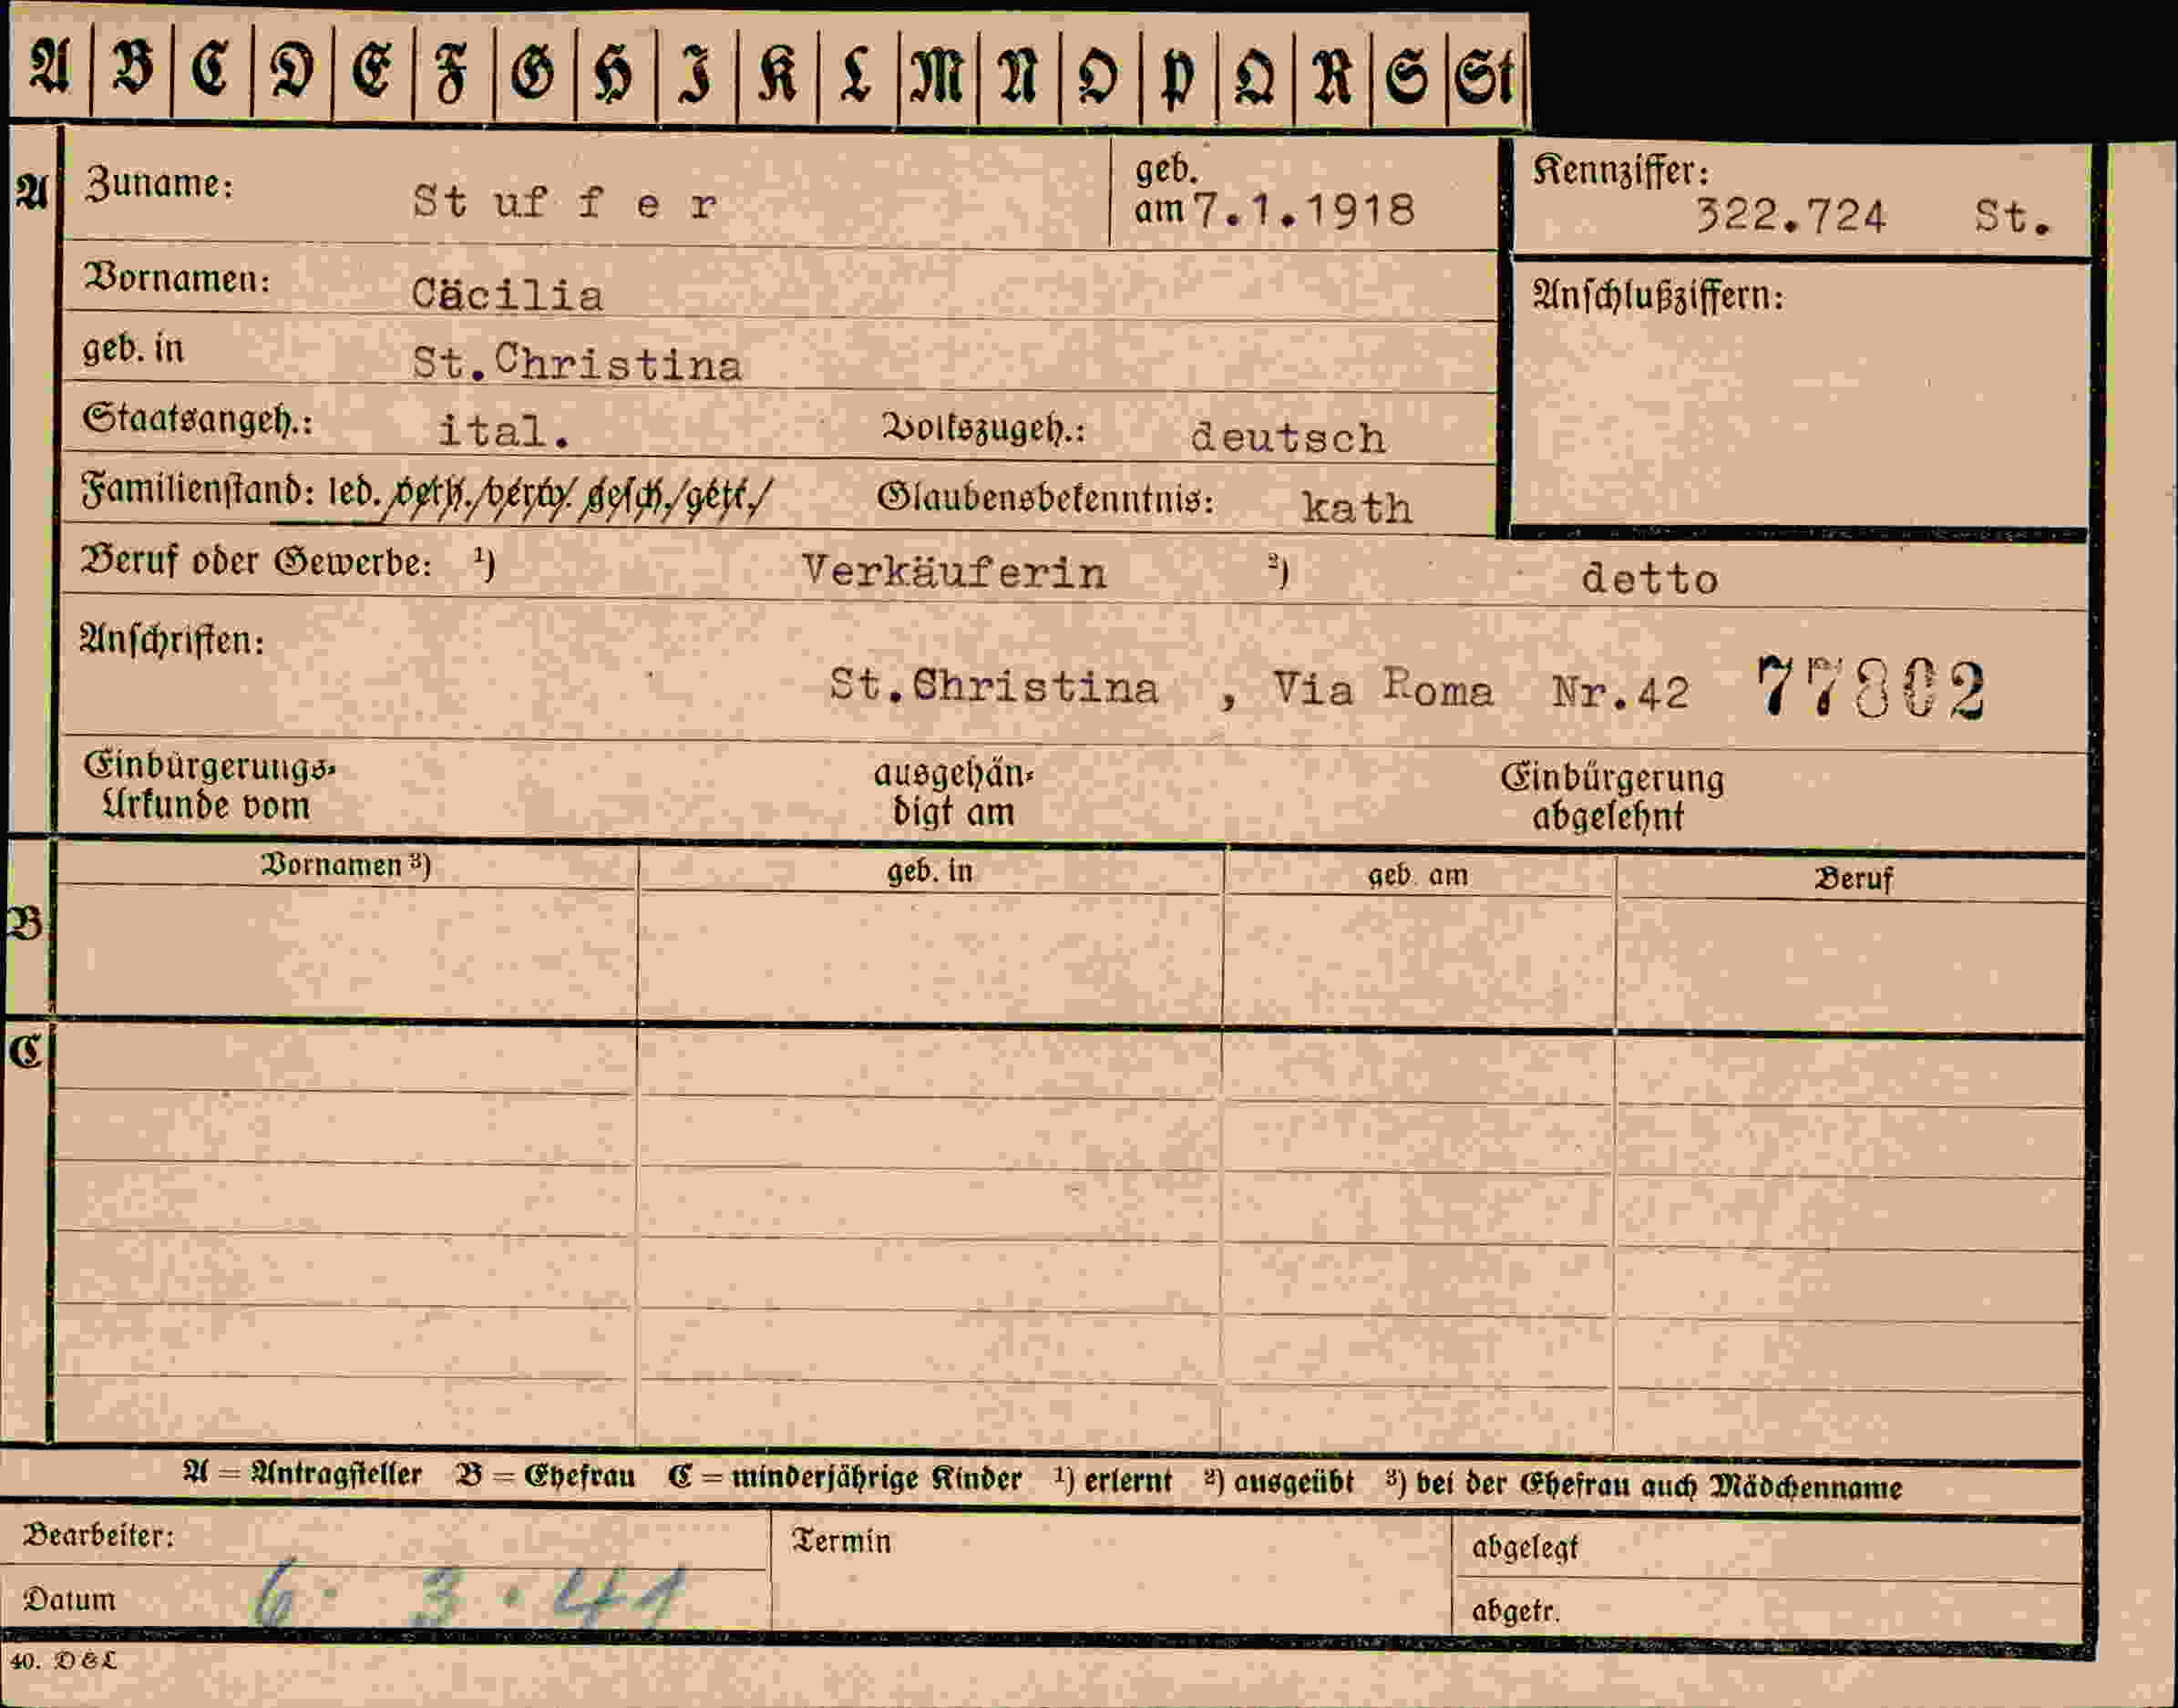 A B C D E F G H I K L M N O P Q R S St
A Zuname: St uf f e r geb. am 7.1.1918 Kennziffer: 322.724 St.
Vornamen: Cäcilia Anschlußziffern:
geb. in St.Christina
Staatsangeh.: ital. Volkszugeh.: deutsch
Familienstand: led. verh./verw./gesch./getr./ Glaubensbekenntnis: kath
Beruf oder Gewerbe: ¹) Verkäuferin ²) detto
Anschriften:
St.Christina , Via Roma Nr.42 77802
Einbürgerungs- ausgehän- Einbürgerung
Urkunde vom digt am abgelehnt
Vornamen ³) geb. in geb. am Beruf
B
C
A = Antragsteller B = Ehefrau C = minderjährige Kinder ¹) erlernt ²) ausgeübt ³) bei der Ehefrau auch Mädchenname
Bearbeiter: Termin abgelegt
Datum 6. 3.41 abgetr.
40. D & L